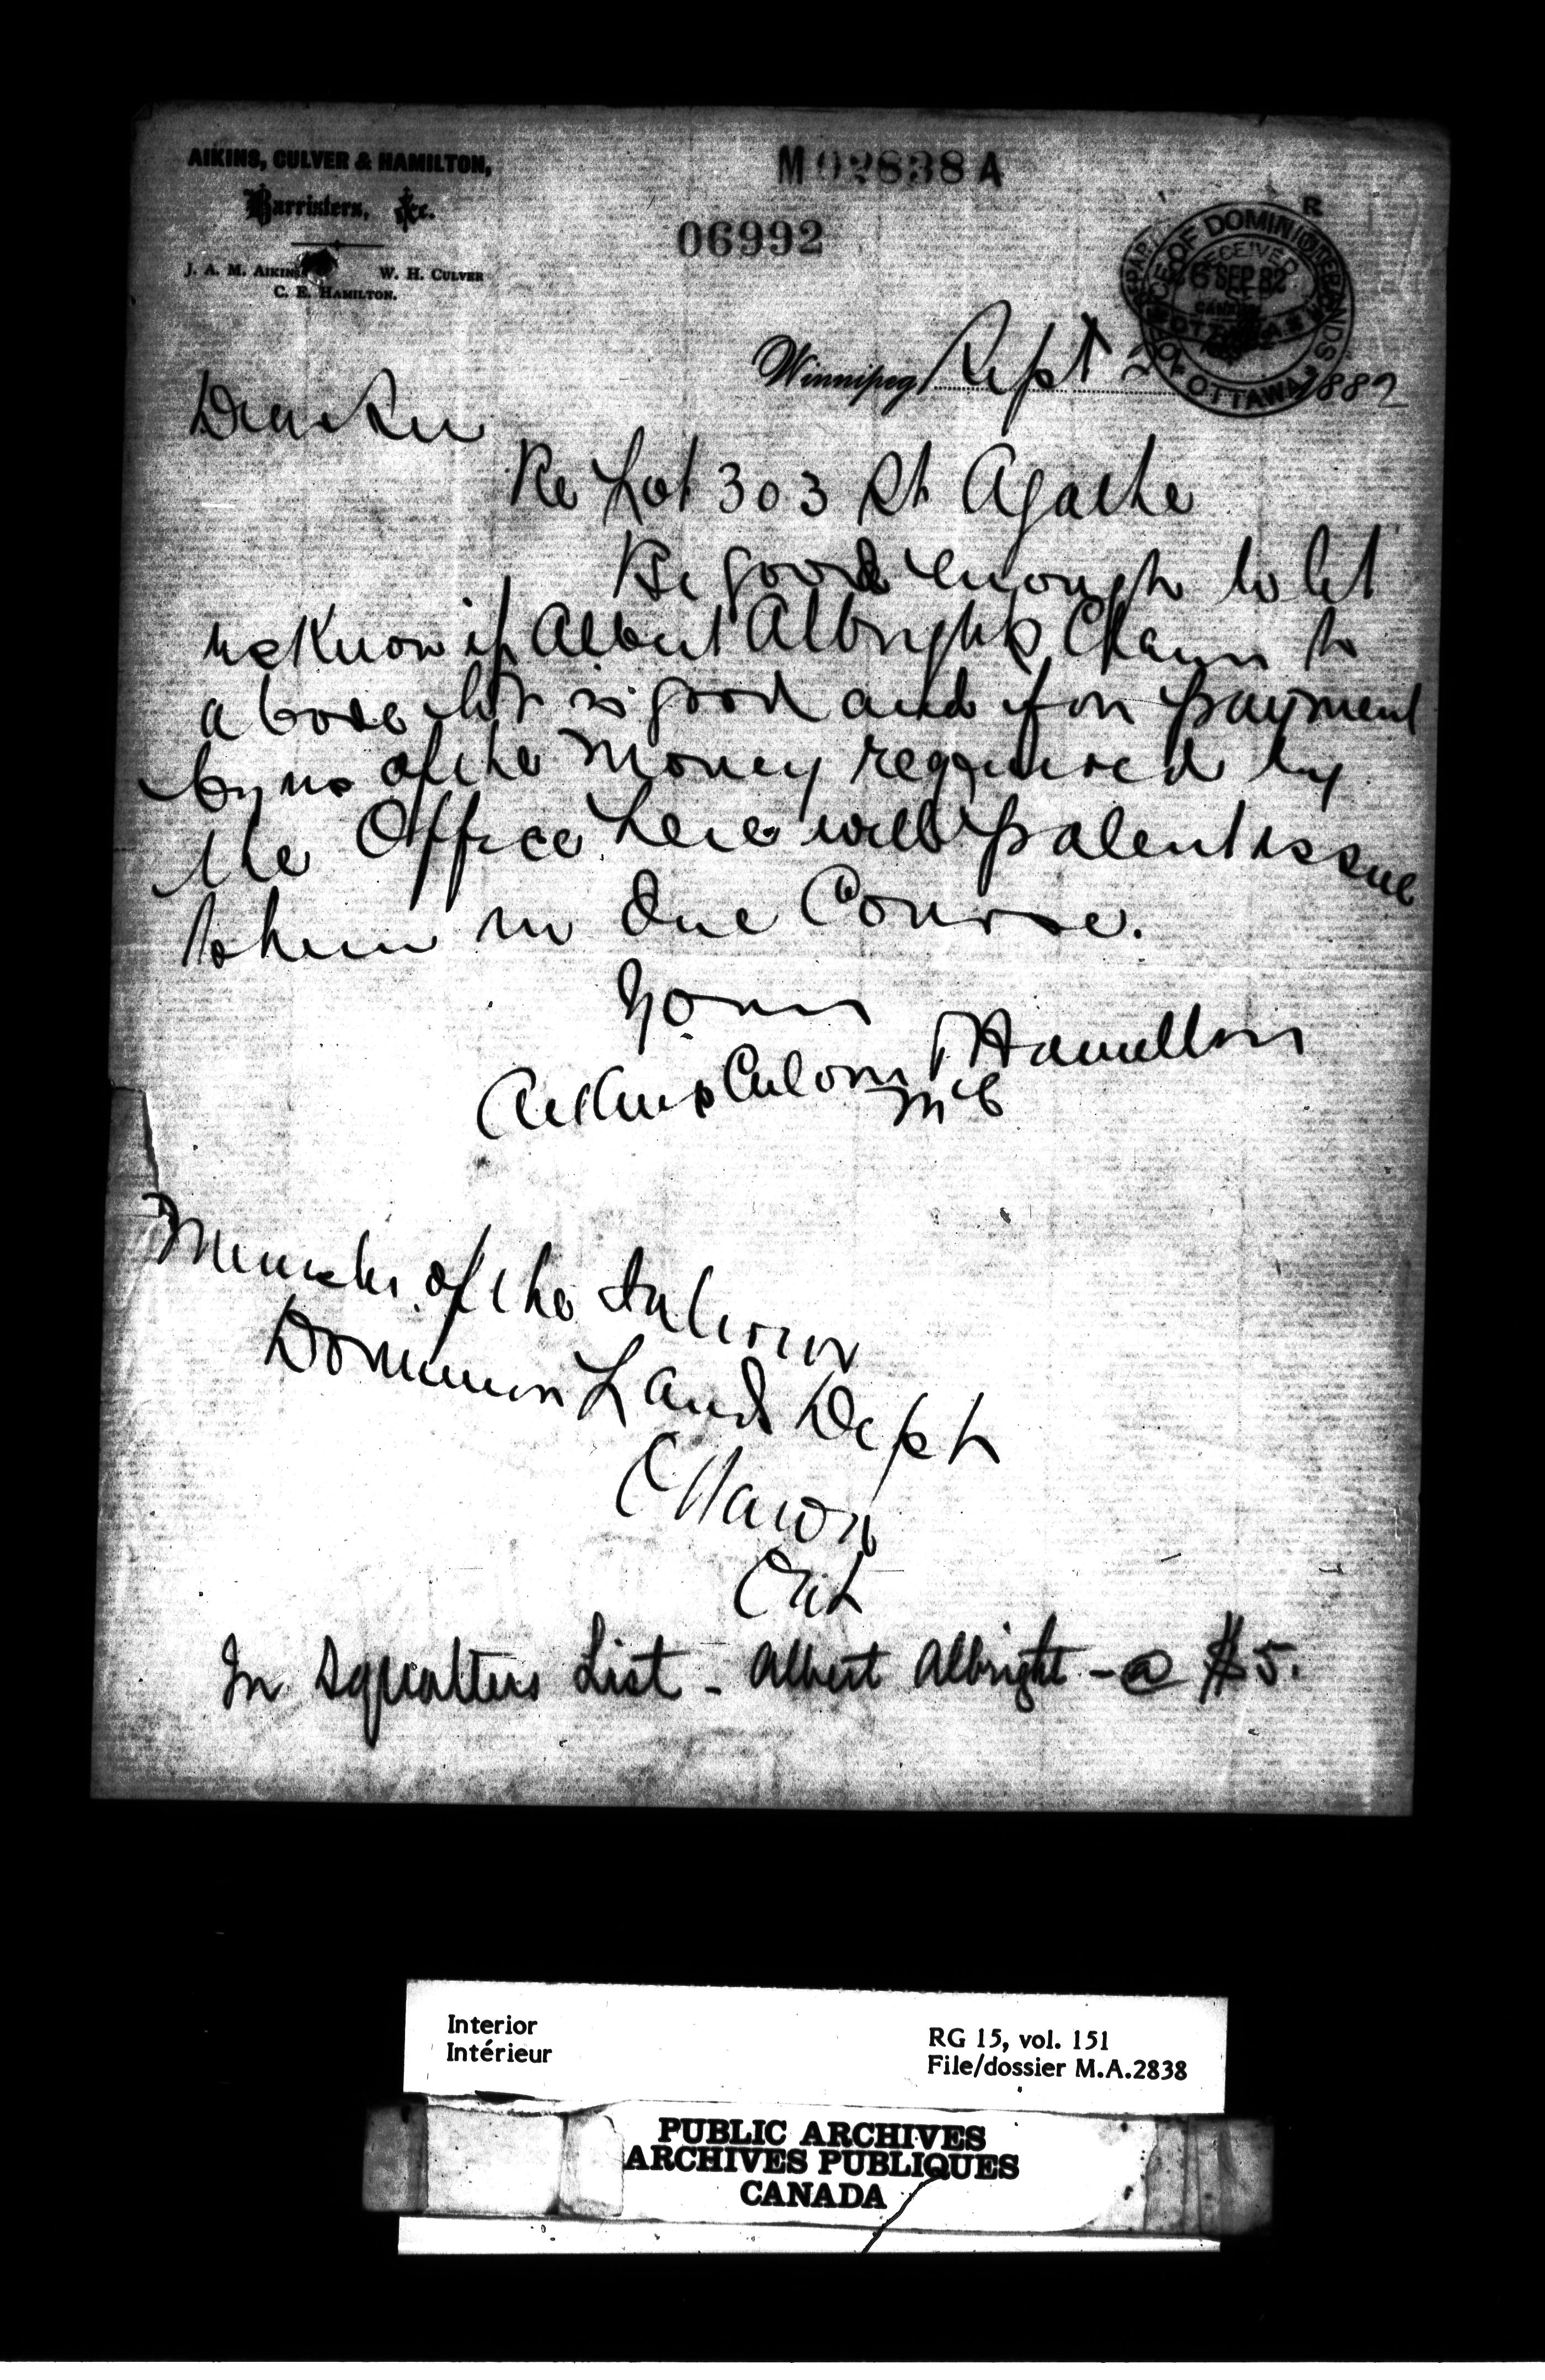 AIKINS, CULVER & HAMILTON,
Barristers, &c.
J. A. M. AIKINS W. H. CULVER
C. E. HAMILTON.
M 02838 A
06992
R
DEPAR
OFFICE OF DOMINION LANDS
RECEIVED
26 SEP 82
OTTAWA
OTTAWA
Winnipeg, Sept 2 1882
Dear Sir
Re Lot 303 St Agathe
Be good enough to let
us know if Albert Albrights Claim to
above lot is good and if on payment
by us of the money required by
the Office here will patent issue
to him in due Course.
Yours
Aikins Culver & Hamilton
Mc
Minister of the Interior
Dominion Lands Dept
Ottawa
Ont
In Squatters List - Albert Albright - @ $5.
Interior
Intérieur
RG 15, vol. 151
File/dossier M.A.2838
PUBLIC ARCHIVES
ARCHIVES PUBLIQUES
CANADA